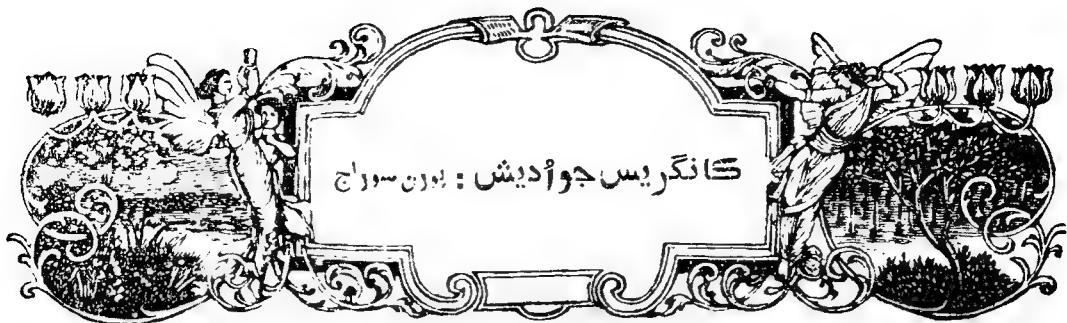 ڪانگريس جو اُديش : پورن سوراج